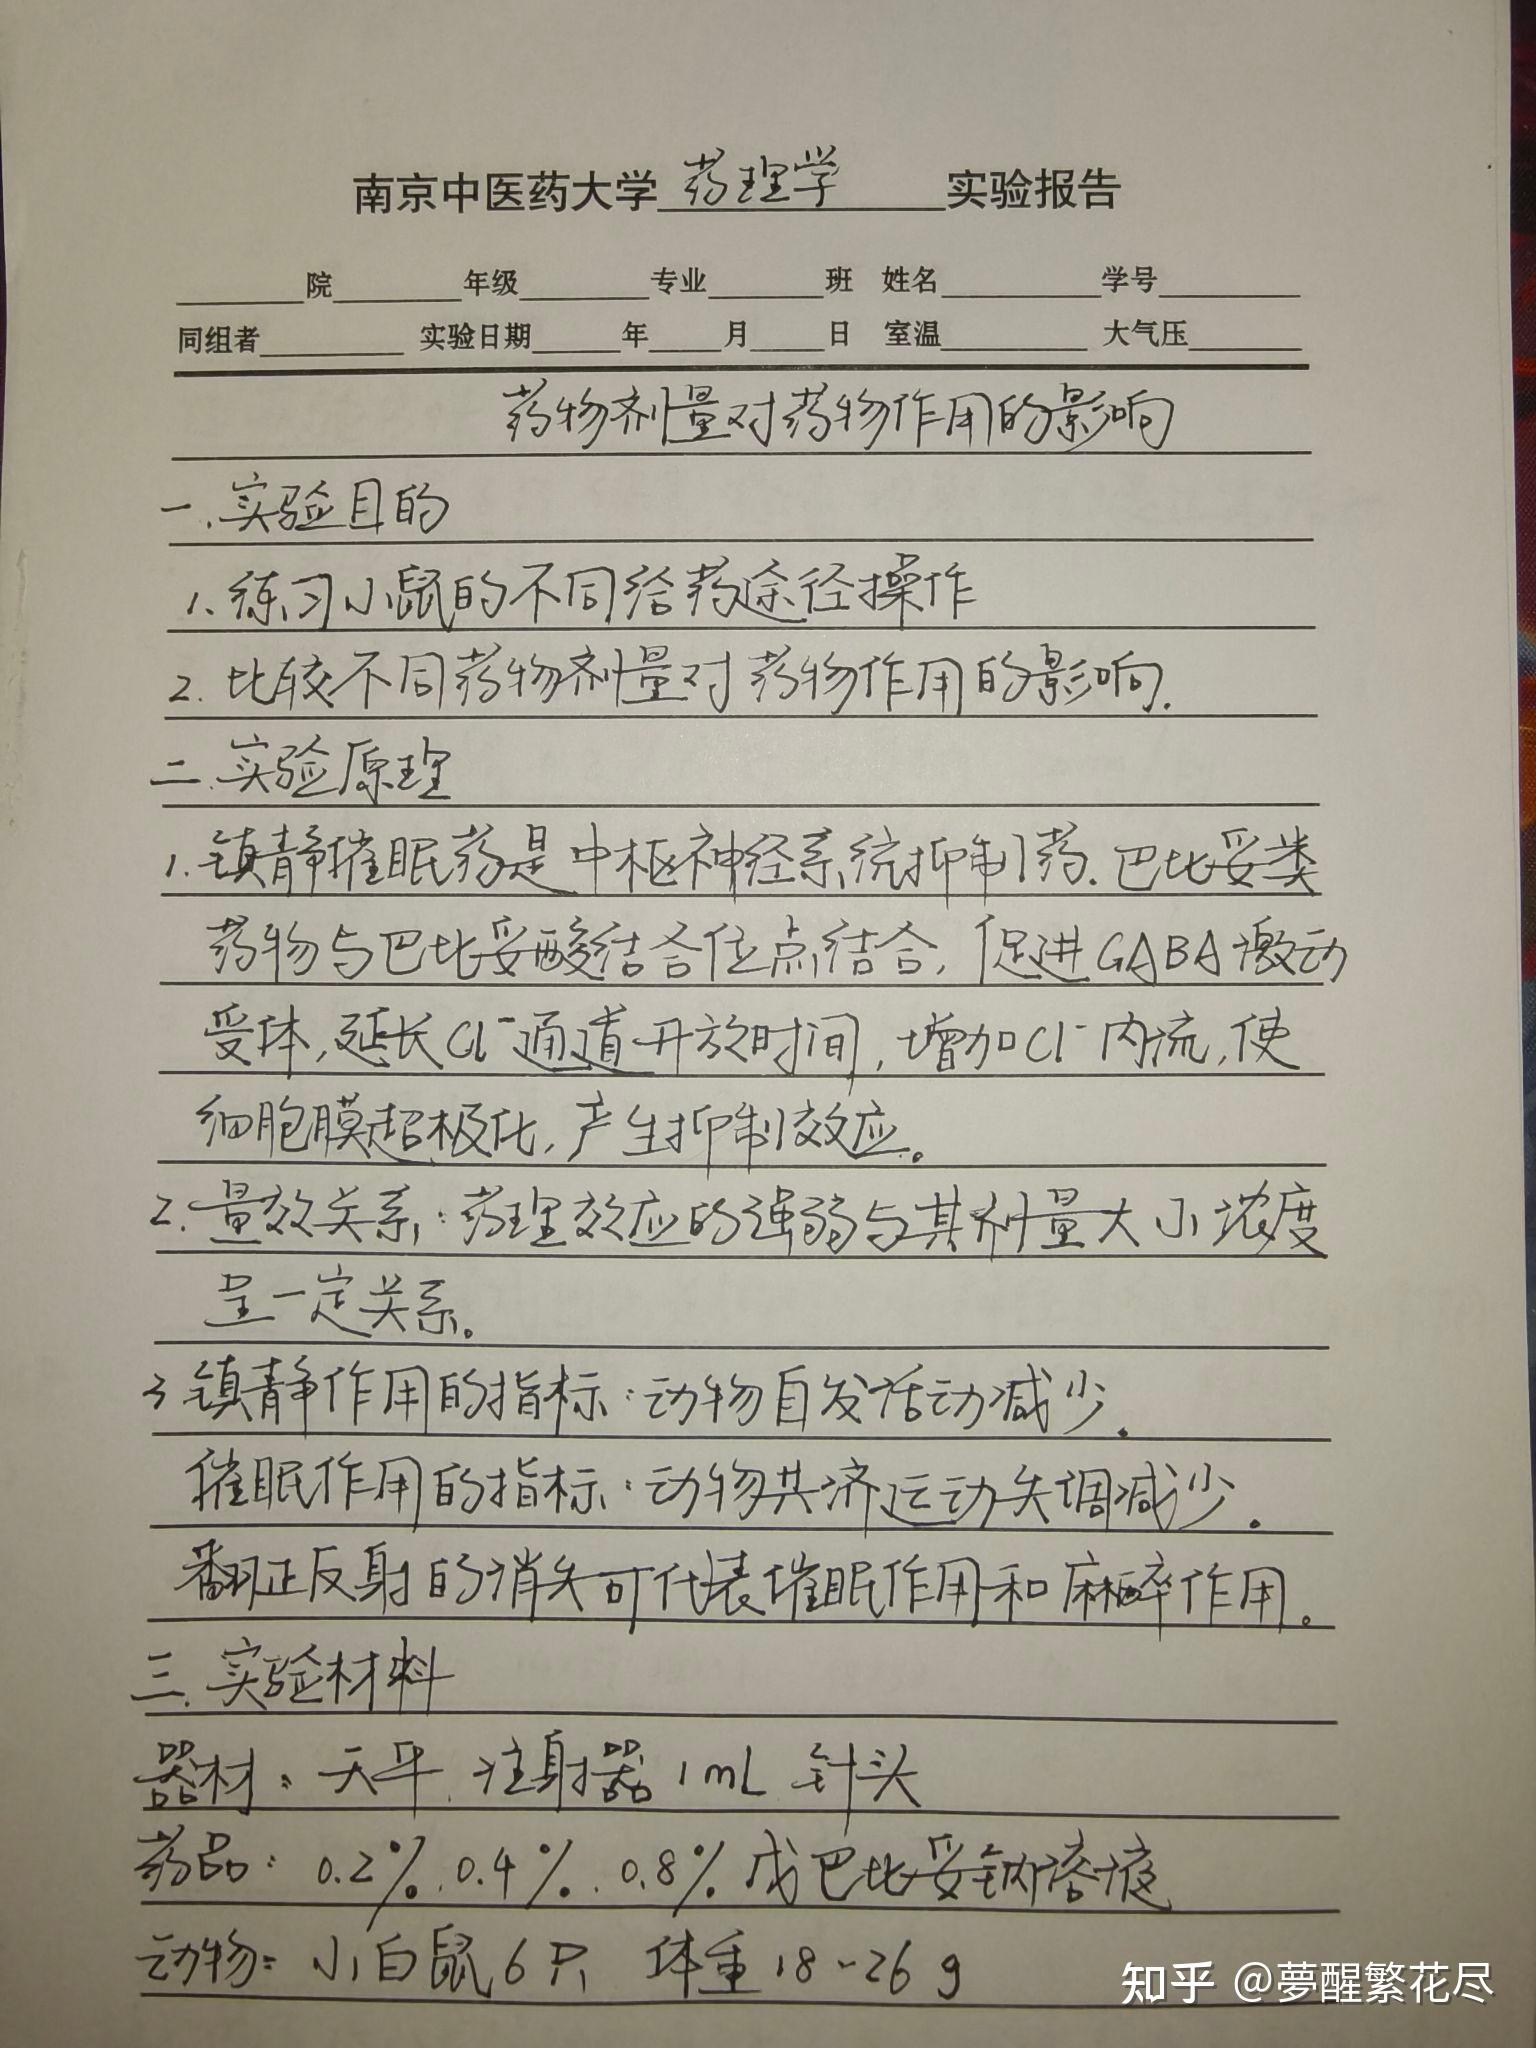 南京中医药大学 药理学 实验报告
院 年级 专业 班 姓名 学号
同组者 实验日期 年 月 日 室温 大气压
药物剂量对药物作用的影响
一.实验目的
1.练习小鼠的不同给药途径操作
2.比较不同药物剂量对药物作用的影响.
二.实验原理
1.镇静催眠药是中枢神经系统抑制药.巴比妥类
药物与巴比妥酸结合位点结合,促进GABA激动
受体,延长Cl⁻通道开放时间,增加Cl⁻内流,使
细胞膜超极化,产生抑制效应。
2.量效关系:药理效应的强弱与其剂量大小浓度
呈一定关系。
3镇静作用的指标:动物自发活动减少.
催眠作用的指标:动物共济运动失调减少.
翻正反射的消失可代表催眠作用和麻醉作用。
三.实验材料
器材:天平.注射器1mL 针头
药品:0.2%.0.4%.0.8%戊巴比妥钠溶液
动物:小白鼠6只 体重18-26g
知乎 @夢醒繁花尽